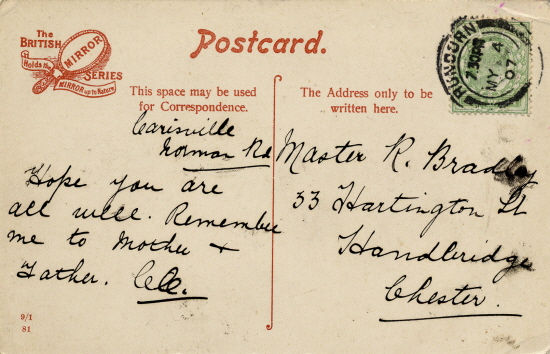 The
BRITISH
MIRROR
Holds the
MIRROR up to Nature
SERIES
Postcard.
RUNCORN
7.30PM
MY 4
07
This space may be used
for Correspondence.
The Address only to be
written here.
Carisville
Norman Rd
Hope you are
all well. Remember
me to Mother +
Father. CC.
Master R. Bradley
33 Hartington St
Handbridge
Chester.
9/1
81